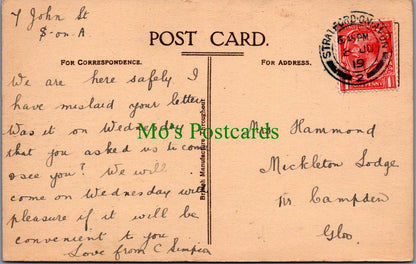 7 John St
S-on-A.
POST CARD.
FOR CORRESPONDENCE.
FOR ADDRESS.
We are here safely I
have mislaid your letter
Was it on Wednesday
that you asked us to come
& see you? We will
come on Wednesday with
pleasure if it will be
convenient to you
Love from C Simpson
British Manufacture Throughout
STRATFORD-ON-AVON
6.45 PM
2 JU
19
2
Mrs Hammond
Mickleton Lodge
Nr Campden
Glos
Mo's Postcards